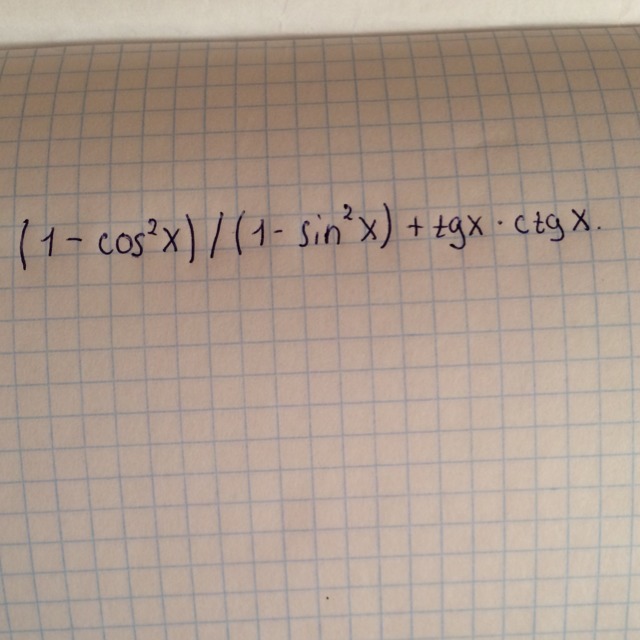 (1 - cos²x) / (1 - sin²x) + tgx · ctgx.